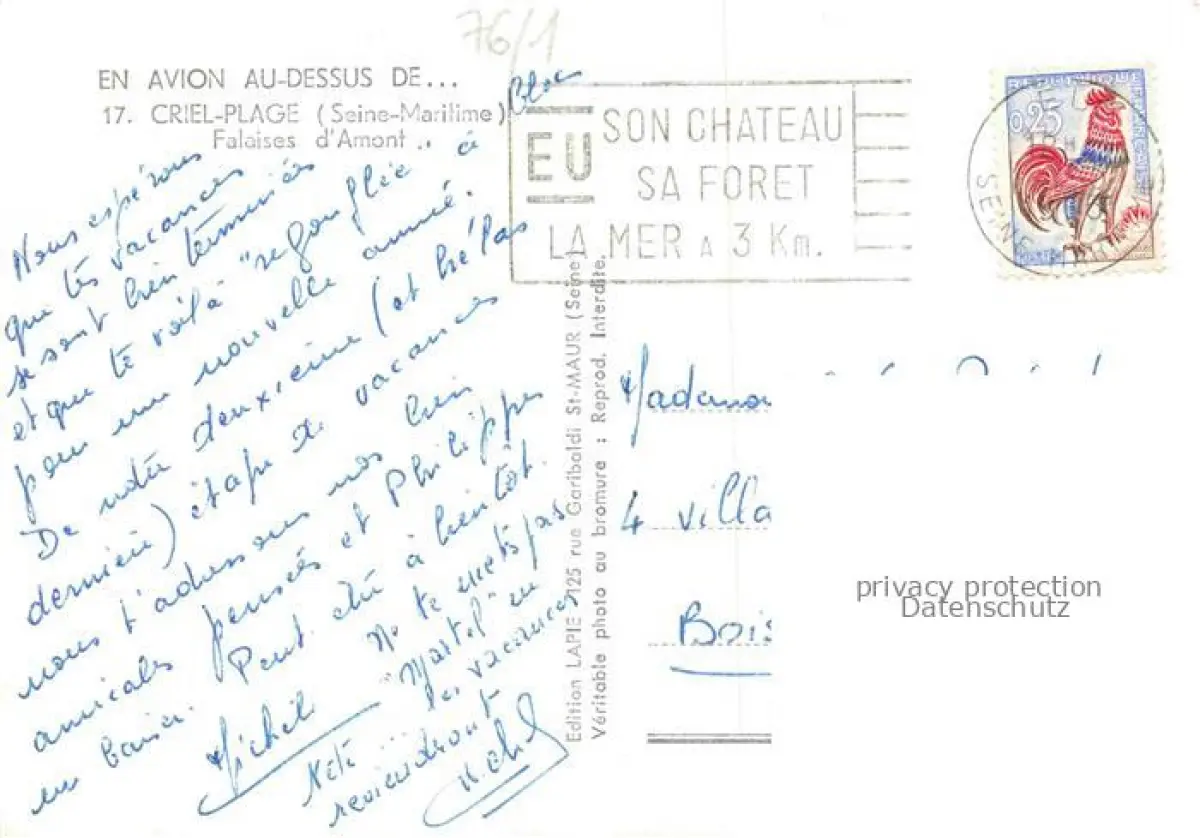 76/1
EN AVION AU-DESSUS DE...
17. CRIEL-PLAGE (Seine-Maritime)
Falaises d'Amont
EU
SON CHATEAU
SA FORET
LA MER A 3 Km.
0,25
SEINE
Nous espérons
que tes vacances
se sont bien terminées
et que te voilà "regonflée à
Bloc
pour une nouvelle année.
De notre deuxième (et hélas
dernière) étape de vacances
nous t'adressons nos bien
amicales pensées et Philippe
un baiser. Peut-être à bientôt.
Michel
Ne te mets pas
"Martel" en
tête
les vacances
reviendront
Edition LAPIE 125 rue Garibaldi St-MAUR (Seine)
Véritable photo au bromure : Reprod. Interdite.
4 Villa
Bois
privacy protection
Datenschutz